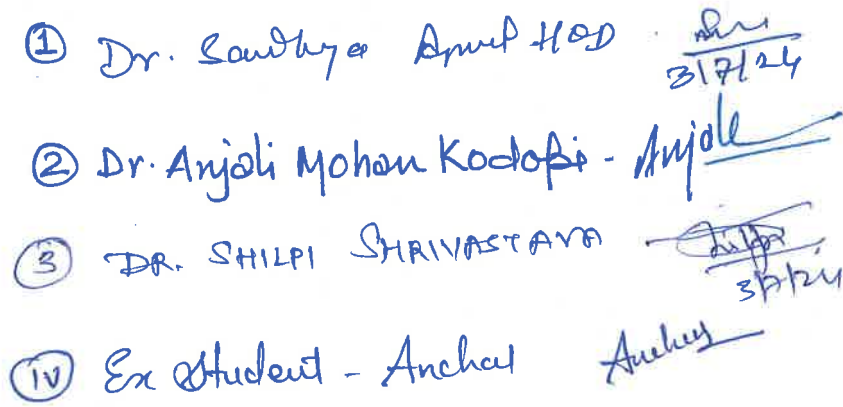 ① Dr. Sandhya HOD 3/7/24
② Dr. Anjali Mohan Kodopi - Anjali
③ DR. SHILPI SHRIVASTAVA Shilpi 3/7/24
iv Ex Student - Anchal